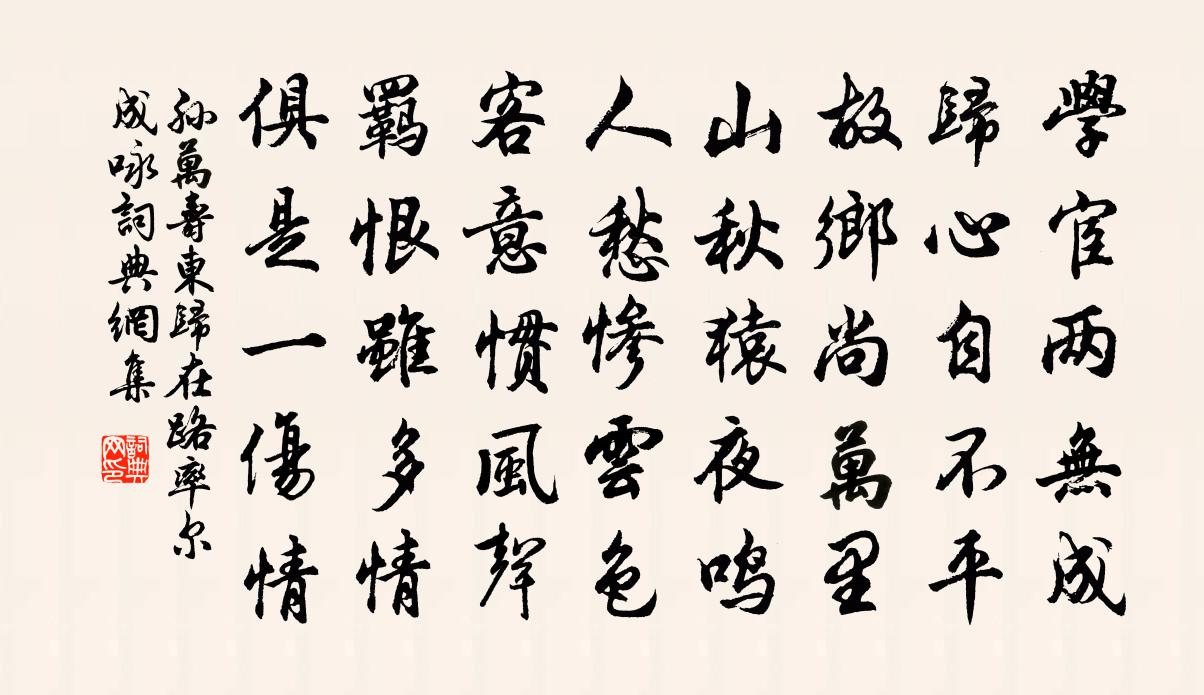 學宦两無成
歸心自不平
故鄉尚萬里
山秋猿夜鸣
人愁惨雲色
客意慣風聲
羁恨雖多情
俱是一傷情
孙萬壽東歸在路率尔
成咏詞典網集
詞典网印